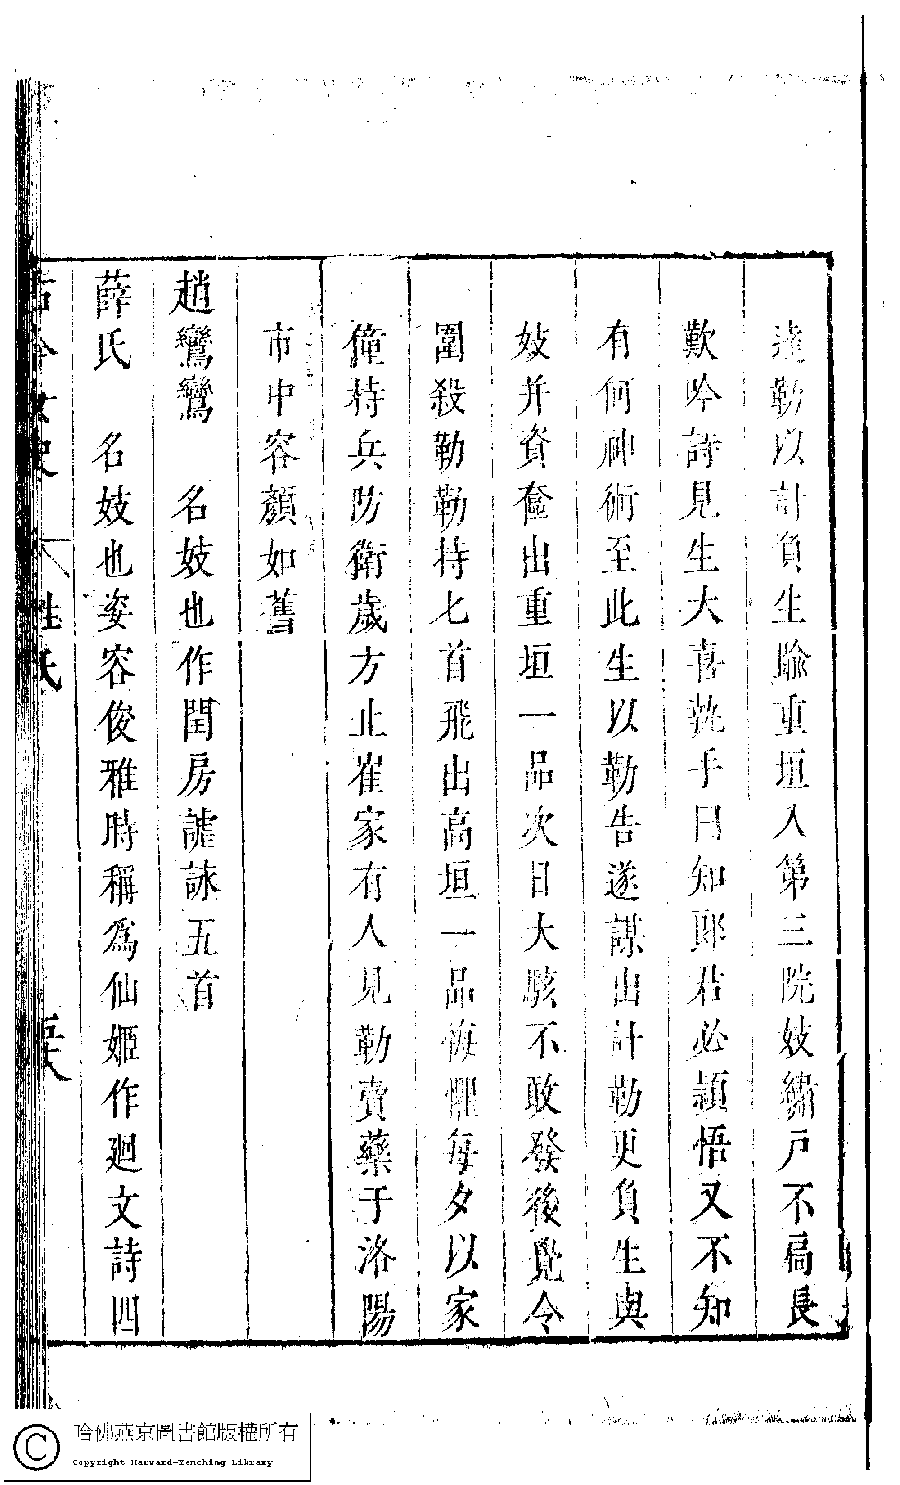 達勒以計負生踰重垣入第三院妓繡戸不扃長
歎吟詩見生大喜執手曰知郎君必頴悟又不知
有何神術至此生以勒告遂謀出計勒更負生與
妓并資奩出重垣一品次日大駭不敢發後覺令
圍殺勒勒持匕首飛出高垣一品悔懼每夕以家
僮持兵防衛歲方止崔家有人見勒賣藥于洛陽
市中容顏如舊
趙鸞鸞　名妓也作閨房謔詠五首
薛氏　名妓也姿容俊雅時稱為仙姬作廻文詩四
古今女史　姓氏
哈佛燕京圖書館版權所有
Copyright Harvard-Yenching Library